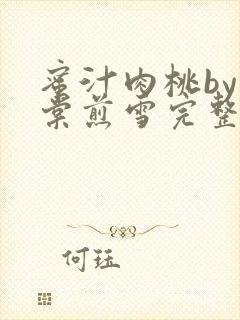 蜜汁肉桃by
棠煎雪完整
何珏